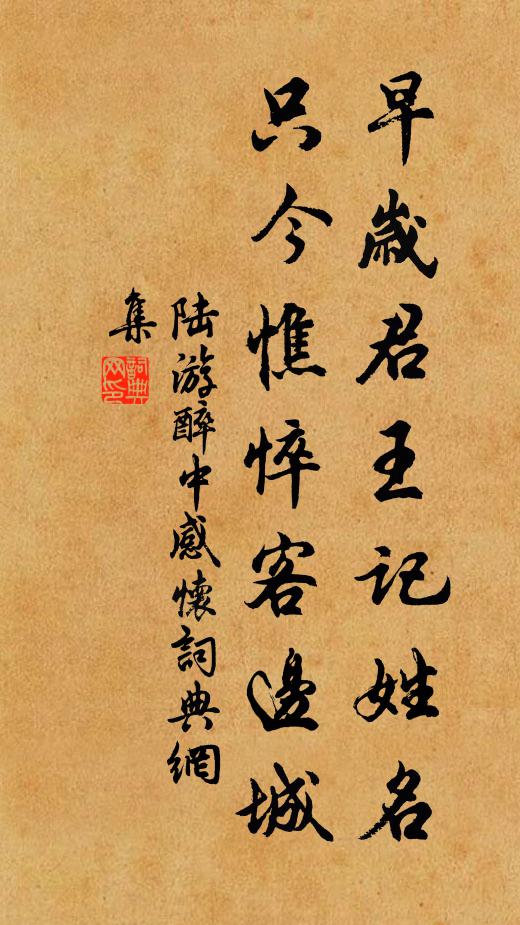 早歲君王記姓名
只今憔悴客邊城
陸游醉中感懷詞典網
集
詞典
网印